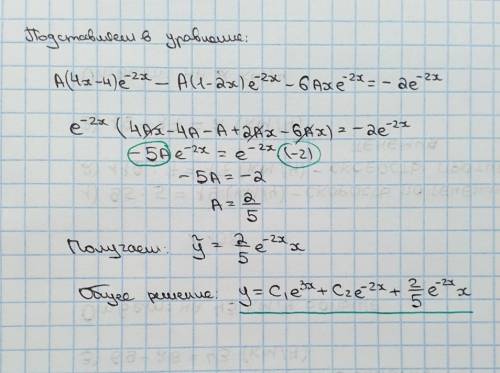 Подставляем в уравнение:
A(4x-4)e^{-2x} - A(1-2x)e^{-2x} - 6Axe^{-2x} = -2e^{-2x}
e^{-2x}(4Ax-4A-A+2Ax-6Ax) = -2e^{-2x}
-5Ae^{-2x} = e^{-2x}(-2)
-5A = -2
A = 2/5
Получаем: ỹ = 2/5 e^{-2x}x
Общее решение: y = C₁e^{3x} + C₂e^{-2x} + 2/5 e^{-2x}x